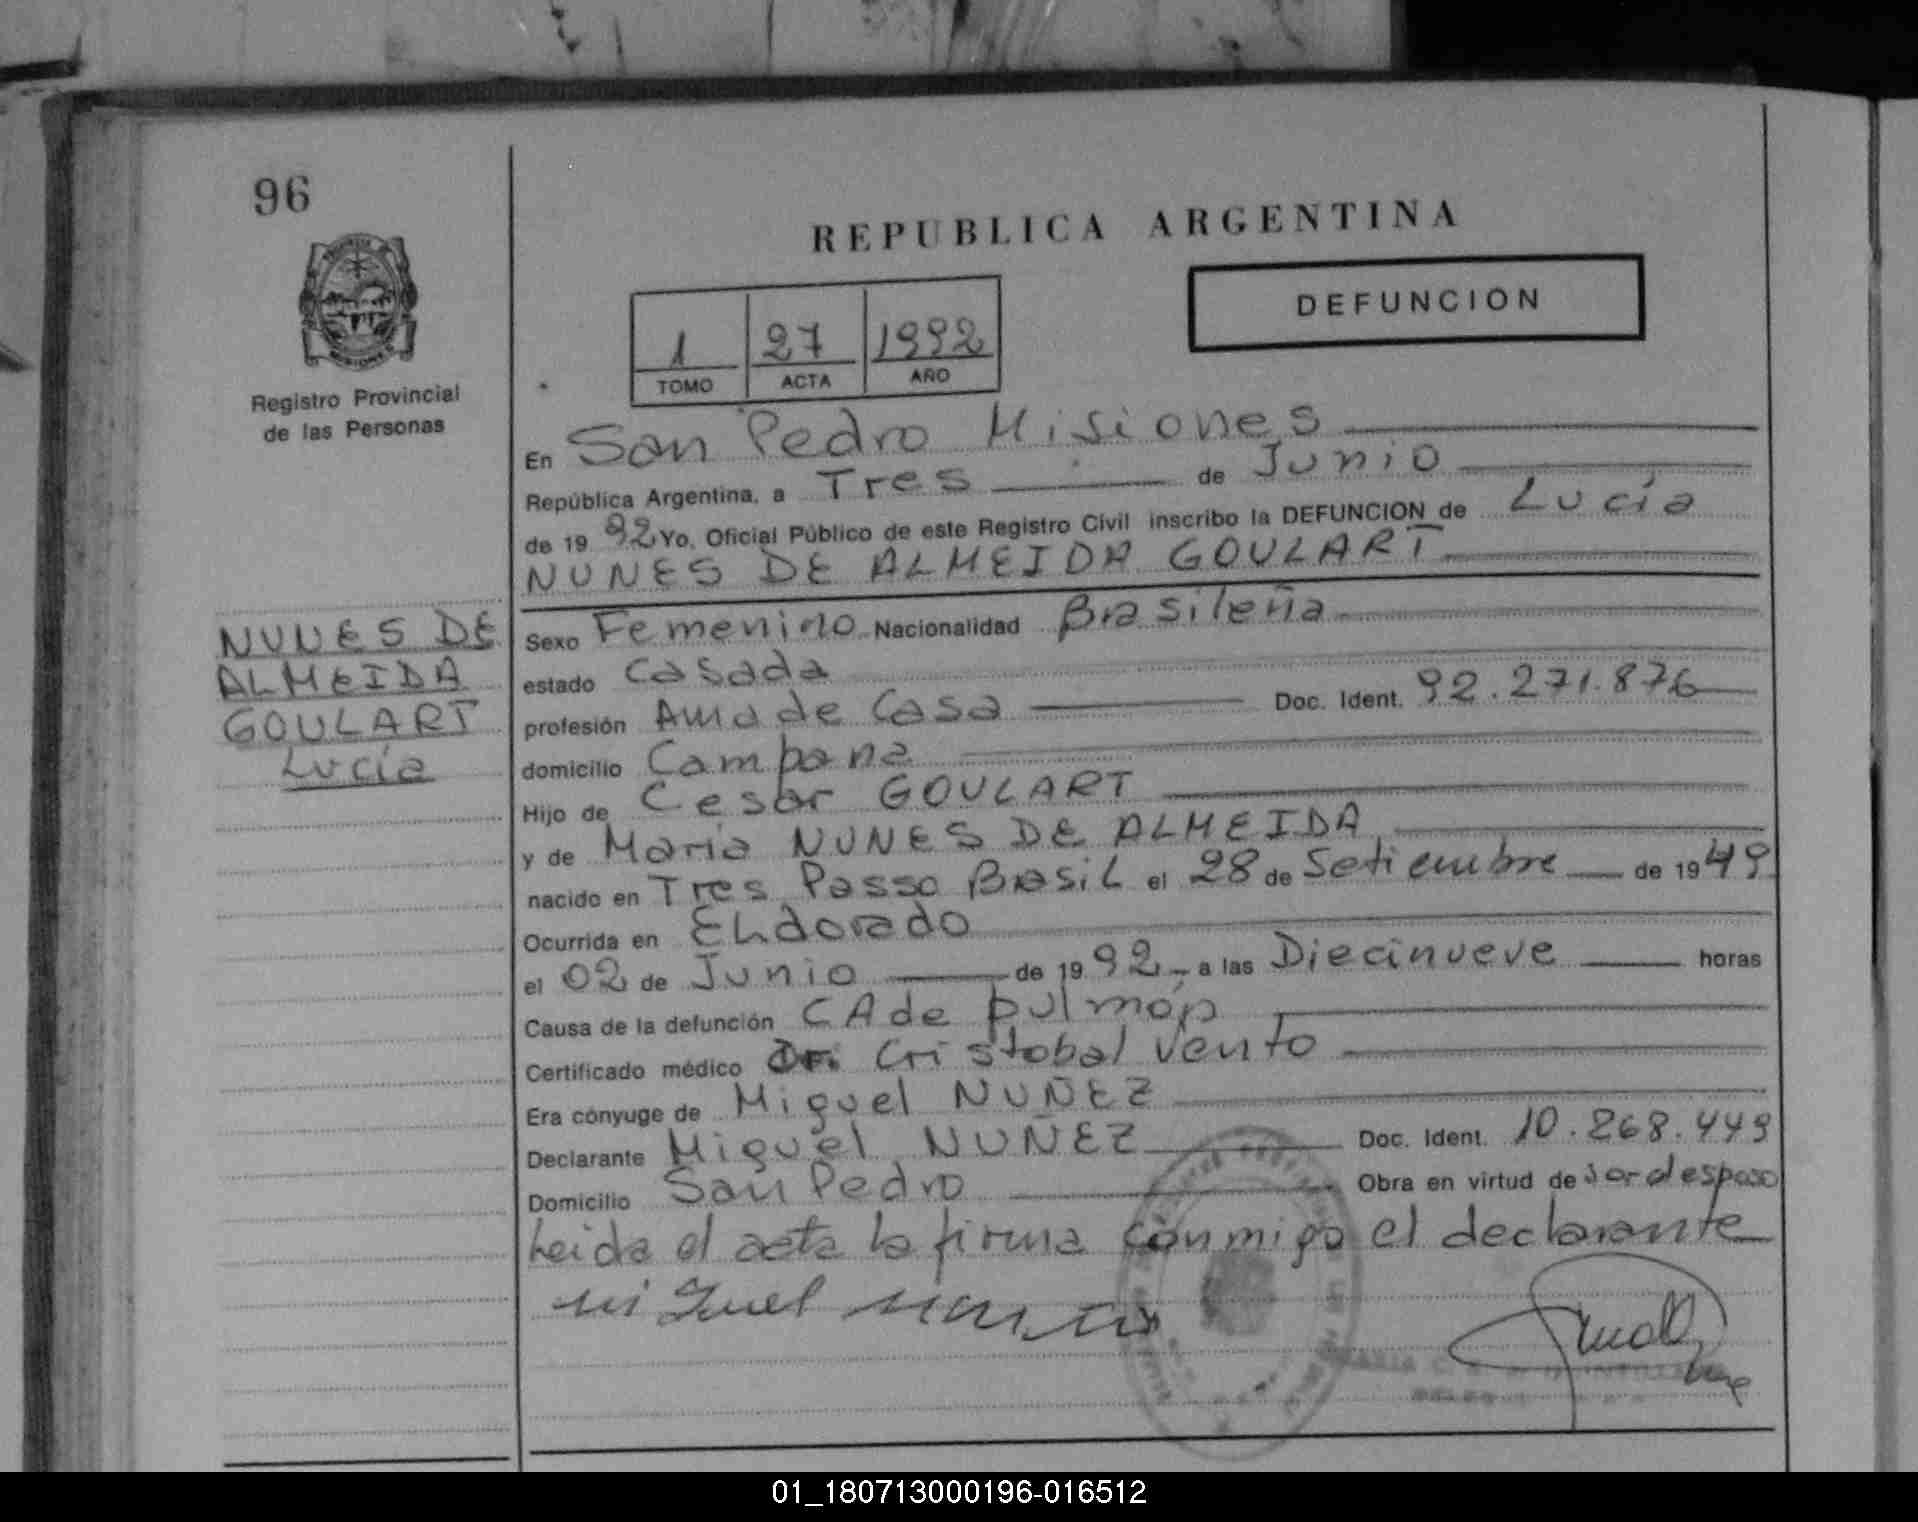 96
REPUBLICA ARGENTINA
DEFUNCION
1 27 1992
TOMO ACTA AÑO
MISIONES
Registro Provincial
de las Personas
En San Pedro Misiones
República Argentina, a Tres de Junio
de 1992 Yo, Oficial Público de este Registro Civil inscribo la DEFUNCION de Lucía
NUNES DE ALMEIDA GOULART
NUNES DE
ALMEIDA
GOULART
Lucía
Sexo Femenino Nacionalidad Brasileña
estado Casada
profesión Ama de Casa Doc. Ident. 92.271.876
domicilio Campana
Hijo de Cesar GOULART
y de Maria NUNES DE ALMEIDA
nacido en Tres Passo Brasil el 28 de Setiembre de 1949
Ocurrida en Eldorado
el 02 de Junio de 1992 a las Diecinueve horas
Causa de la defunción CA de pulmón
Certificado médico Dr. Cristobal Vento
Era cónyuge de Miguel NUÑEZ
Declarante Miguel NUÑEZ Doc. Ident. 10.268.449
Domicilio San Pedro Obra en virtud de ser el esposo
Leida el acta la firma conmigo el declarante
miguel
01_180713000196-016512